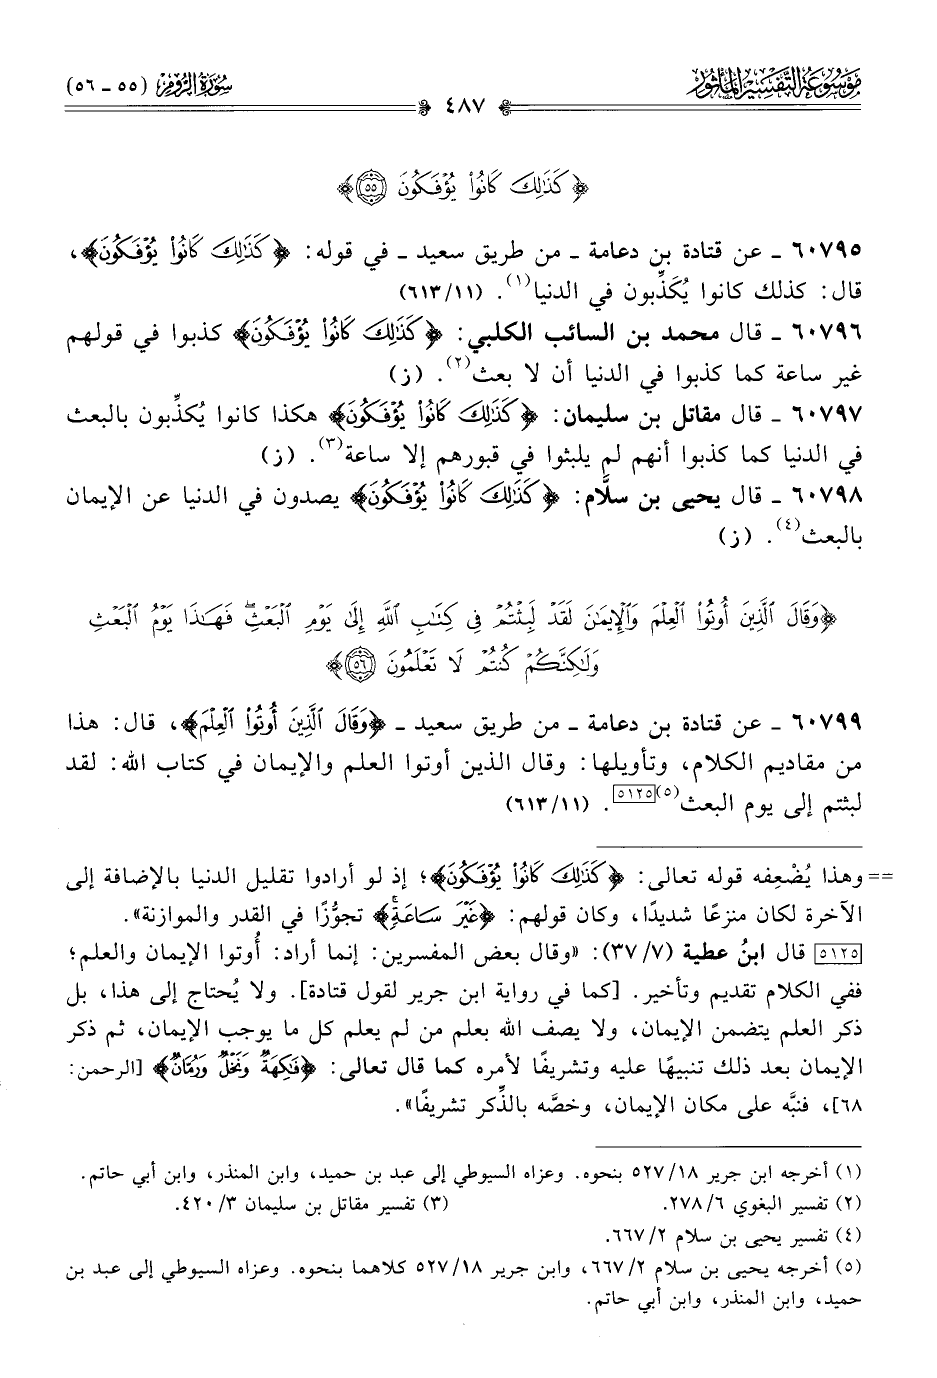 موسوعة التفسير المأثور
سورة الروم (٥٥ ـ ٥٦)
٤٨٧
﴿كَذَٰلِكَ كَانُوا۟ يُؤْفَكُونَ ۝٥٥﴾
٦٠٧٩٥ ـ عن قتادة بن دعامة ـ من طريق سعيد ـ في قوله: ﴿كَذَٰلِكَ كَانُوا۟ يُؤْفَكُونَ﴾،
قال: كذلك كانوا يُكَذِّبون في الدنيا(١). (٦١٣/١١)
٦٠٧٩٦ ـ قال محمد بن السائب الكلبي: ﴿كَذَٰلِكَ كَانُوا۟ يُؤْفَكُونَ﴾ كذبوا في قولهم
غير ساعة كما كذبوا في الدنيا أن لا بعث(٢). (ز)
٦٠٧٩٧ ـ قال مقاتل بن سليمان: ﴿كَذَٰلِكَ كَانُوا۟ يُؤْفَكُونَ﴾ هكذا كانوا يُكذِّبون بالبعث
في الدنيا كما كذبوا أنهم لم يلبثوا في قبورهم إلا ساعة(٣). (ز)
٦٠٧٩٨ ـ قال يحيى بن سلَّام: ﴿كَذَٰلِكَ كَانُوا۟ يُؤْفَكُونَ﴾ يصدون في الدنيا عن الإيمان
بالبعث(٤). (ز)
﴿وَقَالَ ٱلَّذِينَ أُوتُوا۟ ٱلْعِلْمَ وَٱلْإِيمَٰنَ لَقَدْ لَبِثْتُمْ فِى كِتَٰبِ ٱللَّهِ إِلَىٰ يَوْمِ ٱلْبَعْثِ ۖ فَهَٰذَا يَوْمُ ٱلْبَعْثِ
وَلَٰكِنَّكُمْ كُنتُمْ لَا تَعْلَمُونَ ۝٥٦﴾
٦٠٧٩٩ ـ عن قتادة بن دعامة ـ من طريق سعيد ـ ﴿وَقَالَ ٱلَّذِينَ أُوتُوا۟ ٱلْعِلْمَ﴾، قال: هذا
من مقاديم الكلام، وتأويلها: وقال الذين أوتوا العلم والإيمان في كتاب الله: لقد
لبثتم إلى يوم البعث(٥)[٥١٢٥]. (٦١٣/١١)
== وهذا يُضْعِفه قوله تعالى: ﴿كَذَٰلِكَ كَانُوا۟ يُؤْفَكُونَ﴾؛ إذ لو أرادوا تقليل الدنيا بالإضافة إلى
الآخرة لكان منزعًا شديدًا، وكان قولهم: ﴿غَيْرَ سَاعَةٍ﴾ تجوُّزًا في القدر والموازنة».
[٥١٢٥] قال ابنُ عطية (٣٧/٧): «وقال بعض المفسرين: إنما أراد: أُوتوا الإيمان والعلم؛
ففي الكلام تقديم وتأخير. [كما في رواية ابن جرير لقول قتادة]. ولا يُحتاج إلى هذا، بل
ذكر العلم يتضمن الإيمان، ولا يصف الله بعلم من لم يعلم كل ما يوجب الإيمان، ثم ذكر
الإيمان بعد ذلك تنبيهًا عليه وتشريفًا لأمره كما قال تعالى: ﴿فَٰكِهَةٌ وَنَخْلٌ وَرُمَّانٌ﴾ [الرحمن:
٦٨]، فنبَّه على مكان الإيمان، وخصَّه بالذِّكر تشريفًا».
(١) أخرجه ابن جرير ٥٢٧/١٨ بنحوه. وعزاه السيوطي إلى عبد بن حميد، وابن المنذر، وابن أبي حاتم.
(٢) تفسير البغوي ٢٧٨/٦. (٣) تفسير مقاتل بن سليمان ٤٢٠/٣.
(٤) تفسير يحيى بن سلام ٦٦٧/٢.
(٥) أخرجه يحيى بن سلام ٦٦٧/٢، وابن جرير ٥٢٧/١٨ كلاهما بنحوه. وعزاه السيوطي إلى عبد بن
حميد، وابن المنذر، وابن أبي حاتم.